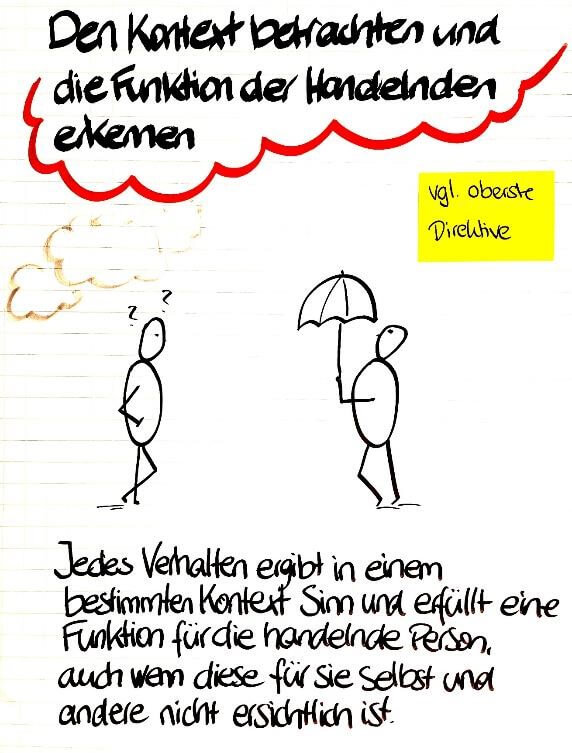 Den Kontext betrachten und
die Funktion der Handelnden
erkennen
vgl. oberste
Direktive
? ?
Jedes Verhalten ergibt in einem
bestimmten Kontext Sinn und erfüllt eine
Funktion für die handelnde Person,
auch wenn diese für sie selbst und
andere nicht ersichtlich ist.